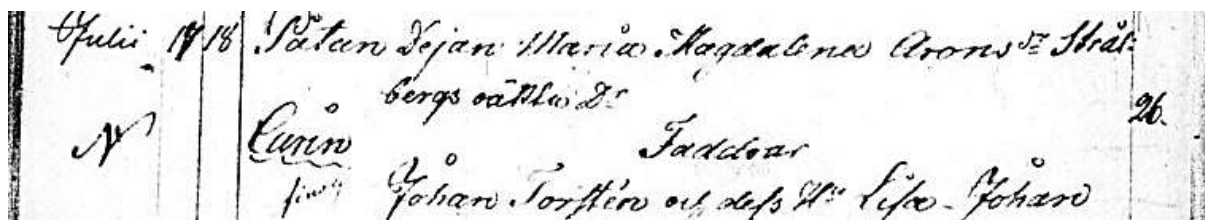 Julii 17 18 Påtan Dejan Maria Magdalena Arons Dr Strål-
bergs oäkta Dr 26.
N Carin Faddrar
Johan Torstén och dess Hu Lisa - Johan